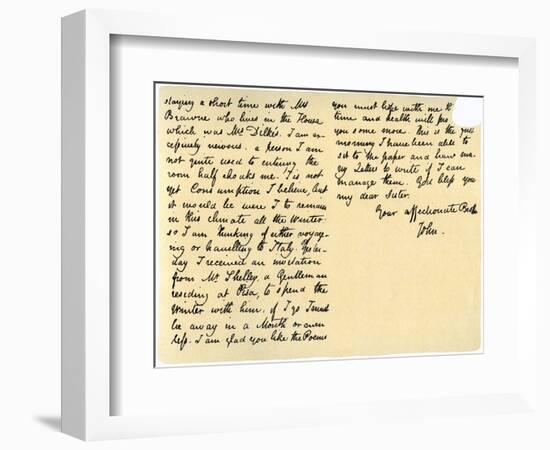 staying a short time with Mrs
Brawne who lives in the House
which was Mrs Dilke's. I am ex-
cessively nervous. a person I am
not quite used to entering the
room half choaks me. 'Tis not
yet Consumption I believe, but
it would be were I to remain
in this climate all the Winter:
so I am thinking of either voyag-
ing or travelling to Italy. Yester-
day I received an invitation
from Mr Shelley, a Gentleman
residing at Pisa, to spend the
Winter with him: if I go I must
be away in a Month or even
less. I am glad you like the Poems
you must hope with me
time and health will
you some more. This is the
morning I have been able to
sit to the paper and have ma-
ny Letters to write if I can
manage them. God bless you
my dear Sister.
Your affectionate
John.